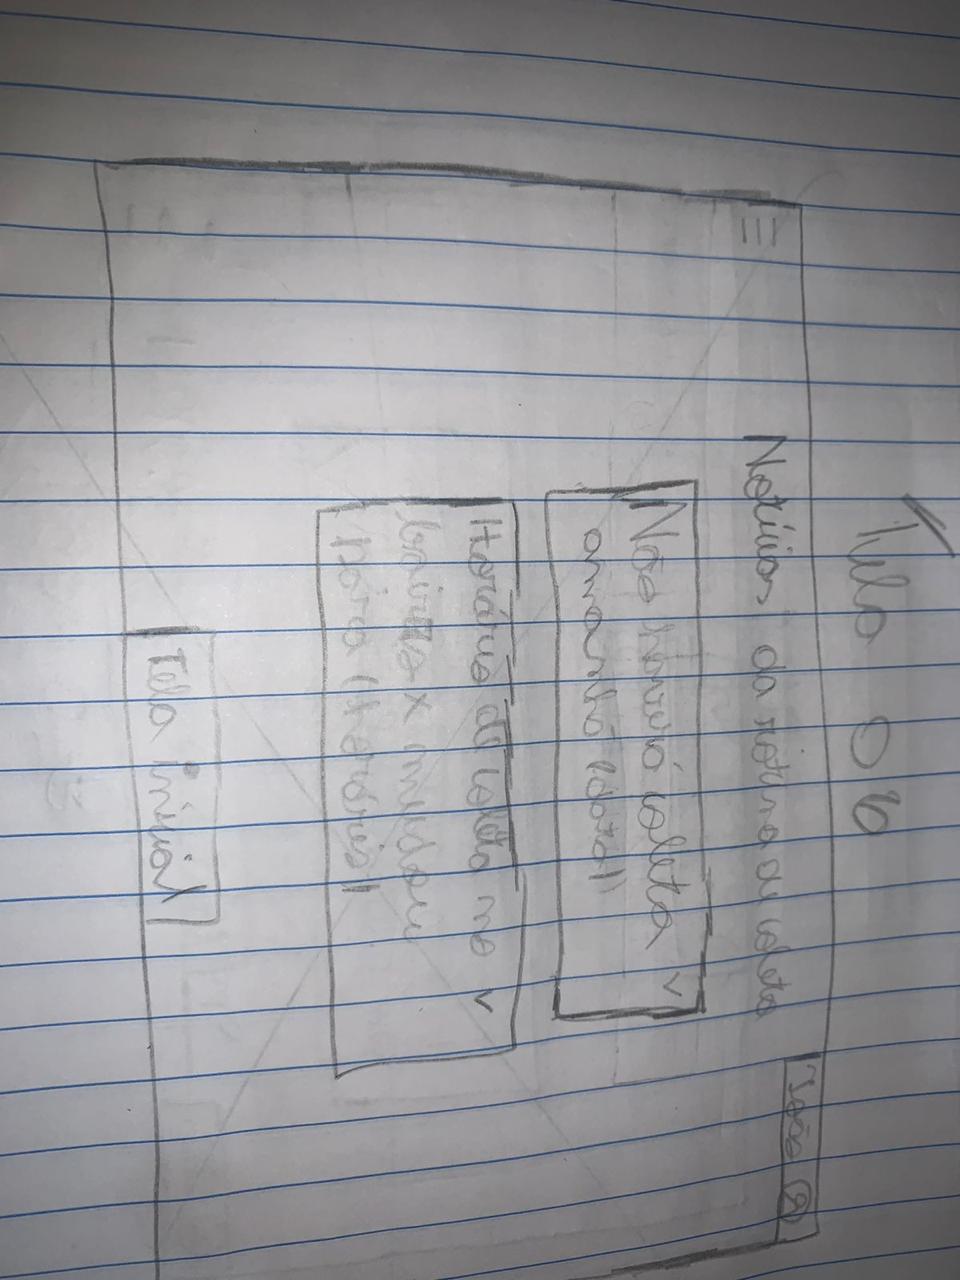 Tela 06
Notícias da rotina de coleta
João
Não haverá coleta
amanhã (data)
Horário de coleta no
bairro x mudou
para (horário)
Tela inicial